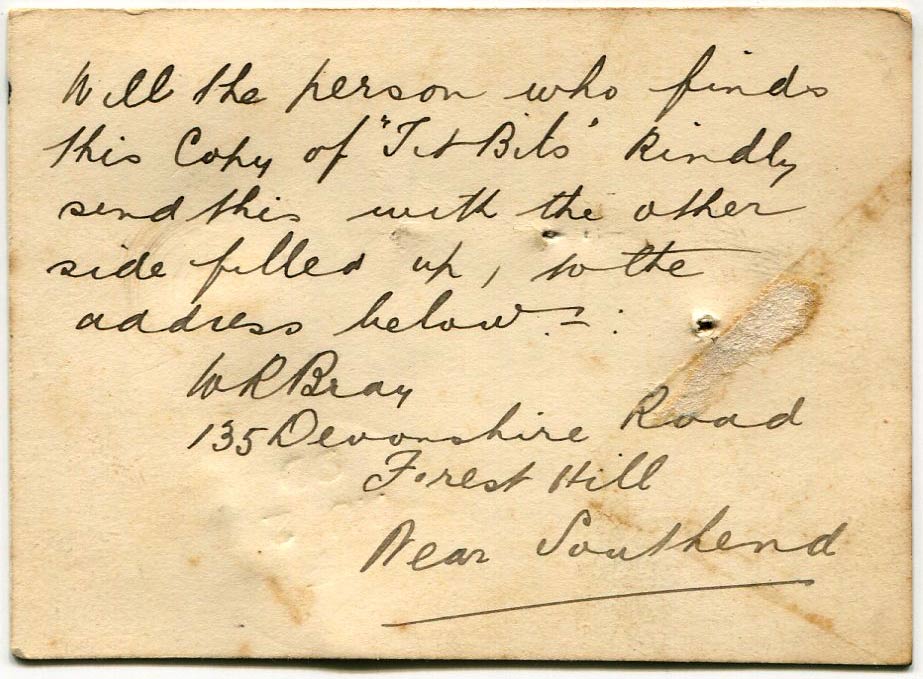 Will the person who finds
this Copy of "Tit Bits" Kindly
send this with the other
side filled up, to the
address below :- :
W R Bray
135 Devonshire Road
Forest Hill
Near Southend